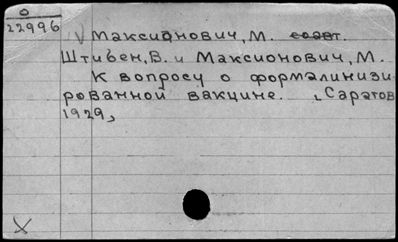 0
22996
Максионович, М. соавт.
Штибен, В. и Максионович, М.
К вопросу о формалинизи-
рованной вакцине. Саратов
1929,